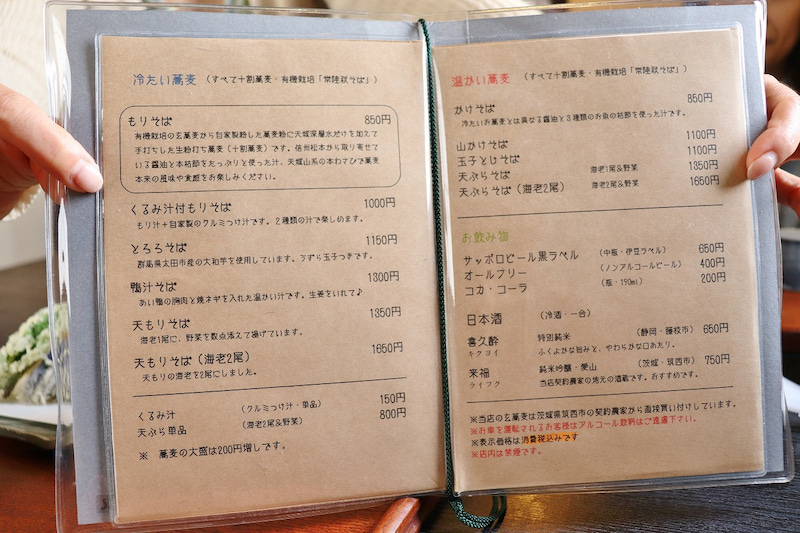 冷たい蕎麦 (すべて十割蕎麦・有機栽培「常陸秋そば」)
もりそば 850円
有機栽培の玄蕎麦から自家製粉した蕎麦粉に天城深層水だけを加えて
手打ちした生粉打ち蕎麦（十割蕎麦）です。信州松本から取り寄せて
いる醤油と本枯節をたっぷりと使った汁、天城山系の本わさびで蕎麦
本来の風味や食感をお楽しみください。
くるみ汁付もりそば 1000円
もり汁＋自家製のクルミつけ汁です。2種類の汁で楽しめます。
とろろそば 1150円
群馬県太田市産の大和芋を使用しています。うずら玉子つきです。
鴨汁そば 1300円
あい鴨の胸肉と焼ネギを入れた温かい汁です。生姜をいれて♪
天もりそば 1350円
海老1尾に、野菜を数点添えて揚げています。
天もりそば（海老2尾） 1650円
天もりの海老を2尾にしました。
くるみ汁 (クルミつけ汁・単品) 150円
天ぷら単品 (海老2尾&野菜) 800円
※ 蕎麦の大盛は200円増しです。
温かい蕎麦 (すべて十割蕎麦・有機栽培「常陸秋そば」)
かけそば 850円
冷たいお蕎麦とは異なる醤油と3種類のお魚の枯節を使った汁です。
山かけそば 1100円
玉子とじそば 1100円
天ぷらそば 海老1尾&野菜 1350円
天ぷらそば（海老2尾） 海老2尾&野菜 1650円
お飲み物
サッポロビール黒ラベル (中瓶・伊豆ラベル) 650円
オールフリー (ノンアルコールビール) 400円
コカ・コーラ (瓶・190ml) 200円
日本酒 (冷酒・一合)
喜久酔 特別純米 (静岡・藤枝市) 650円
キクヨイ ふくよかな旨みと、やわらかな口あたり。
来福 純米吟醸・愛山 (茨城・筑西市) 750円
ライフク 当店契約農家の地元の酒蔵です。おすすめです。
※当店の玄蕎麦は茨城県筑西市の契約農家から直接買い付けしています。
※お車を運転されるお客様はアルコール飲料はご遠慮下さい。
※表示価格は消費税込みです
※店内は禁煙です。